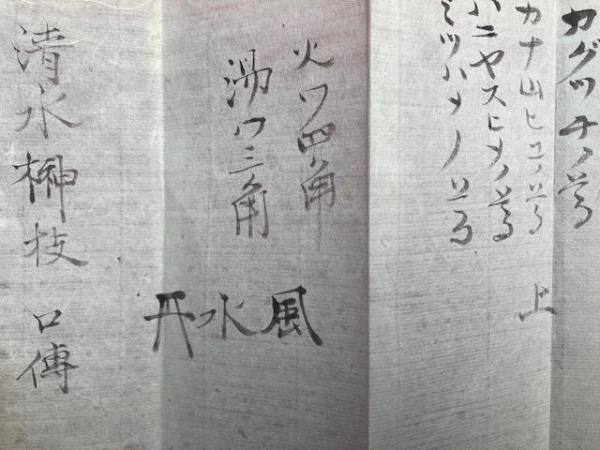 カグツチノ尊
カナ山ヒコノ尊
ハニヤスヒメノ尊
ミツハメノ尊
上
火ワ四角
湯ワ三角
風水丹
清水榊枝 口傳